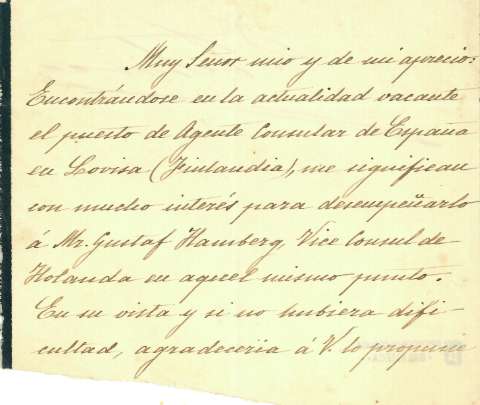 Muy Señor mio y de mi aprecio:
Encontrándose en la actualidad vacante
el puesto de Agente Consular de España
en Lovisa (Finlandia), me significan
con mucho interés para desempeñarlo
á Mr. Gustaf Hamberg, Vice Consul de
Holanda en aquel mismo punto.
En su vista y si no hubiera difi-
cultad, agradeceria á V. lo propusie